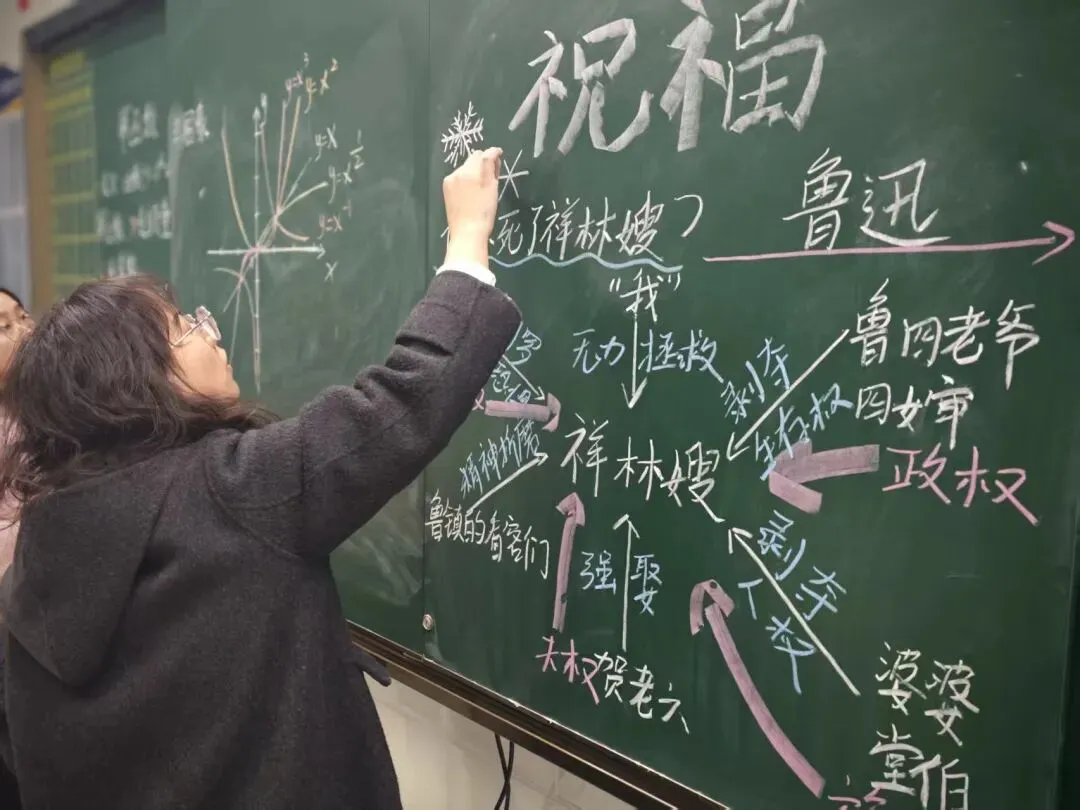 祝福
鲁迅
死了祥林嫂
"我"
无力拯救
鲁四老爷
四婶
剥夺
生存权
政权
祥林嫂
精神折磨
鲁镇的看客们
强娶
夫权
贺老六
剥夺
人权
婆婆
堂伯
y=x³
y=x²
y=x
y=x^½
y=x⁻¹
x